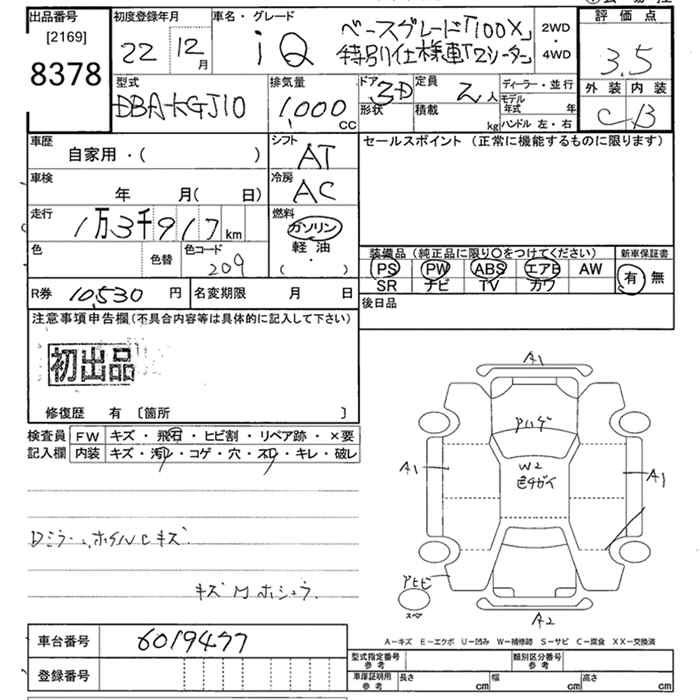 出品番号
[2169]
8378
初度登録年月
22 12月
車名・グレード
iQ
ベースグレード「100X」
特別仕様車「2シーター」
2WD
・
4WD
評価点
3.5
外装 内装
C B
型式
DBA-KGJ10
排気量
1,000
CC
ドア
3D
形状
定員
2人
積載
kg
ディーラー・並行
モデル年式 年
ハンドル 左・右
車歴
自家用・( )
シフト
AT
車検
年 月( 日)
冷房
AC
走行
1万3千917km
燃料
ガソリン
軽油
( ・ )
色
色替
色コード
209
セールスポイント (正常に機能するものに限ります)
装備品(純正品に限り〇をつけてください)
PS PW ABS エアB AW
SR ナビ TV カワ
新車保証書
有 無
R券 10,530 円
名変期限 月 日
後日品
注意事項申告欄(不具合内容等は具体的に記入して下さい)
初出品
修復歴 有 [箇所 ]
検査員記入欄
FW キズ・飛石・ヒビ割・リペア跡・×要
内装 キズ・汚レ・コゲ・穴・スリ・キレ・破レ
Dミラー、ホイルCキズ
A1
Pハゲ
A1
W2
A1
スペア
A2
A-キズ E-エクボ U-凹み W-補修跡 S-サビ C-腐食 XX-交換済
車台番号
6019477
登録番号
型式指定番号
参考
類別区分番号
参考
車庫証明用
参考
長さ cm
幅 cm
高さ cm